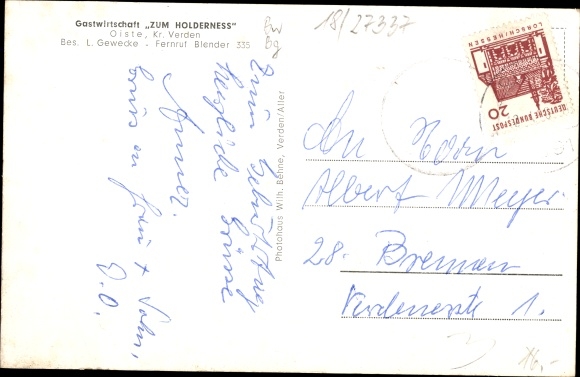 Gastwirtschaft „ZUM HOLDERNESS"
Oiste, Kr. Verden
Bes. L. Gewecke - Fernruf Blender 335
18/27337
Bw
Bg
Zum Geburtstag
Herzliche Grüsse
Gruss an Frau + Sohn.
D. O.
Photohaus Wilh. Behne, Verden/Aller
LORSCH/HESSEN
20
DEUTSCHE BUNDESPOST
An Herrn
Albert Meyer
28. Bremen
Verdenerstr 1.
16,-